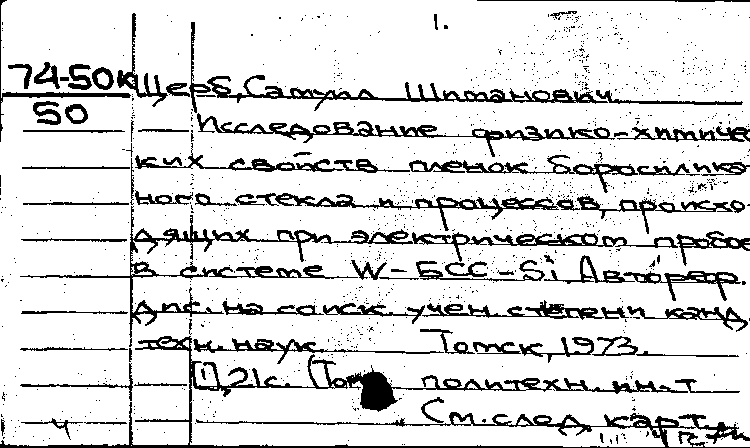 1.
74-50к Щерб, Самуил Шиманович.
50
Исследование физико-химичес
ких свойств пленок боросиликат
ного стекла и процессов, происхо
дящих при электрическом пробое
в системе W-БСС-Si. Автореф.
дис. на соиск. учен. степени канд.
техн. наук. Томск, 1973.
[1], 21с. (Том политехн. ин-т
См. след. карт.